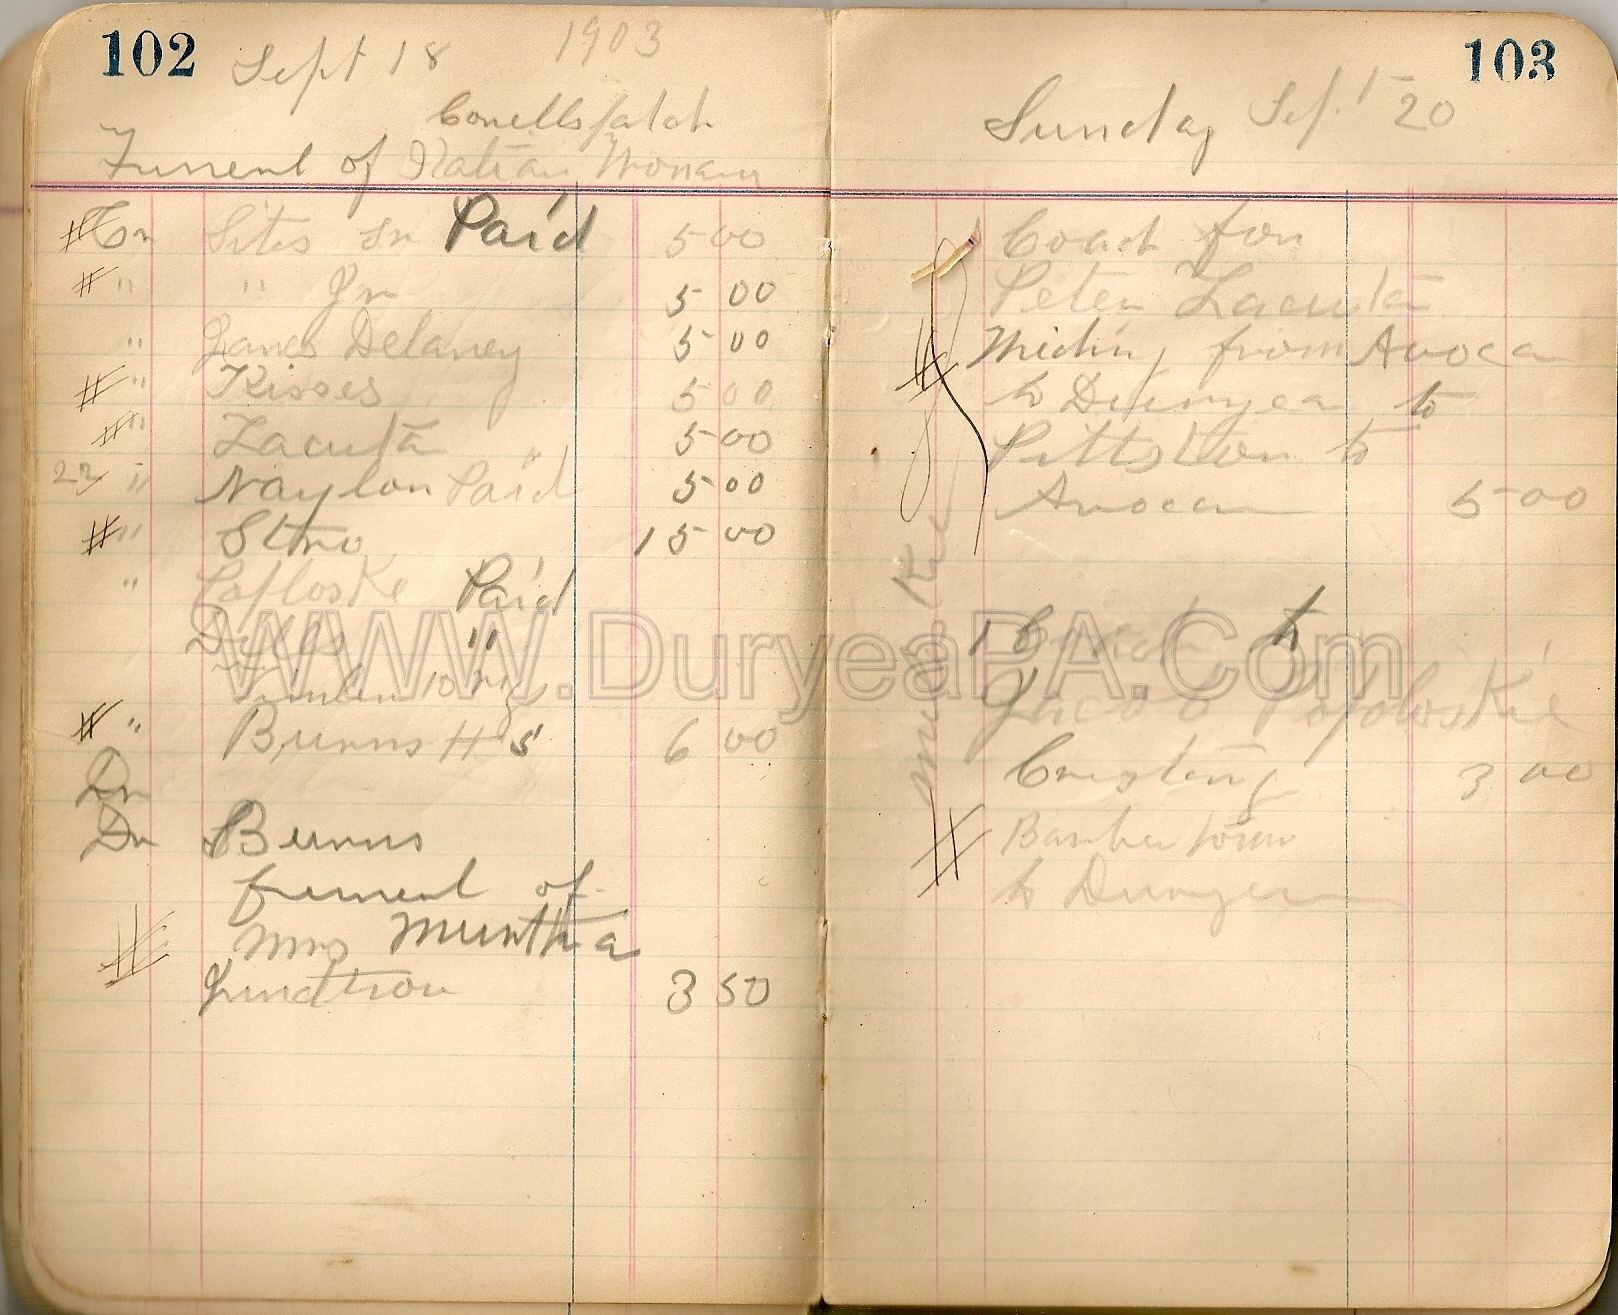 102
Sept 18 1903
Conellspatch
Funnerl of Italian Woman
Cr Sites Sr Paid 5 00
" " Jr 5 00
" James Delaney 5 00
" Kisses 5 00
" Lacuta " 5 00
" Naylon Paid 5 00
" Stino 15 00
" Poploske Paid
Dills "
10
" Burns H S 6 00
Dr
Dr Burns
funeral of
Mrs Muntha
3 50
103
Sunday Sept 20
Coach for
Peter Lacuta
from Avoca
to Duryea to
Pittston to
Avoca 5 00
1 Coach to
Jacob Popoloskie
Cristing 3 00
Barbertown
to Duryea
WWW.DuryeaPA.Com